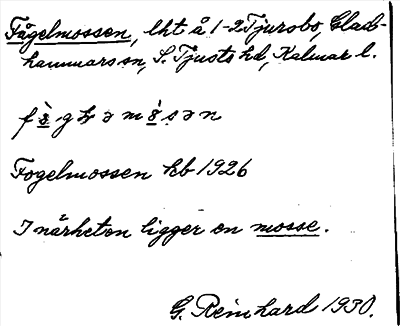 Fågelmossen, lht å 1-2 Tjursbo, Glad-
hammars sn, S. Tjusts hd, Kalmar l.
Fogelmossen kb 1926
I närheten ligger en mosse.
G. Reinhard 1930.